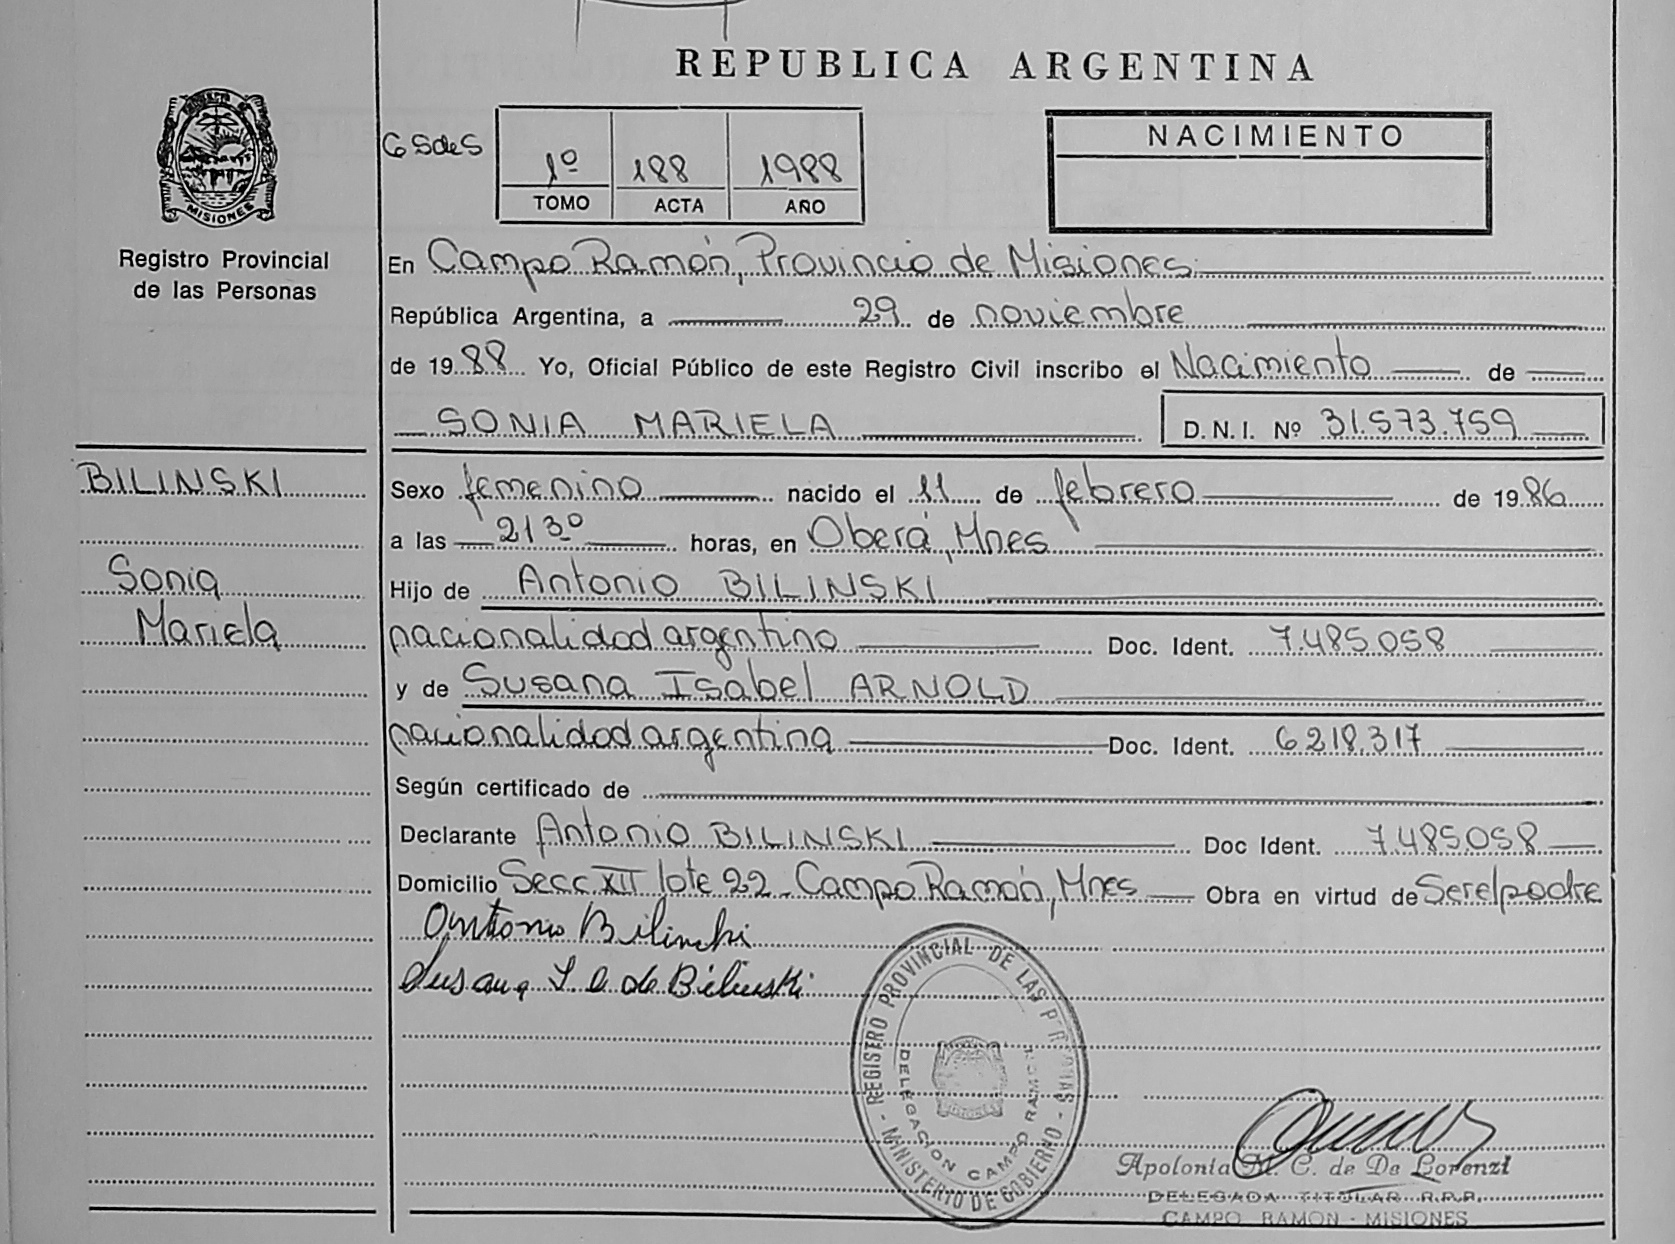 REPUBLICA ARGENTINA
MISIONES
Registro Provincial
de las Personas
1º 188 1988
TOMO ACTA AÑO
NACIMIENTO
En Campo Ramón, Provincia de Misiones
República Argentina, a 29 de noviembre
de 1988 Yo, Oficial Público de este Registro Civil inscribo el Nacimiento de
SONIA MARIELA D.N.I. Nº 31.573.759
BILINSKI
Sonia
Mariela
Sexo femenino nacido el 11 de febrero de 1986
a las 21 30 horas, en Oberá, Mnes
Hijo de Antonio BILINSKI
nacionalidad argentino Doc. Ident. 7.485.058
y de Susana Isabel ARNOLD
nacionalidad argentina Doc. Ident. 6.218.317
Según certificado de
Declarante Antonio BILINSKI Doc Ident. 7.485.058
Domicilio Secc. XII lote 22 - Campo Ramón, Mnes Obra en virtud de Ser el padre
Antonio Bilinski
Susana I. de Bilinski
REGISTRO PROVINCIAL DE LAS PERSONAS - MINISTERIO DE GOBIERNO -
DELEGACION CAMPO RAMON
Apolonia M. C. de De Lorenzi
DELEGADA TITULAR R.P.P.
CAMPO RAMON - MISIONES